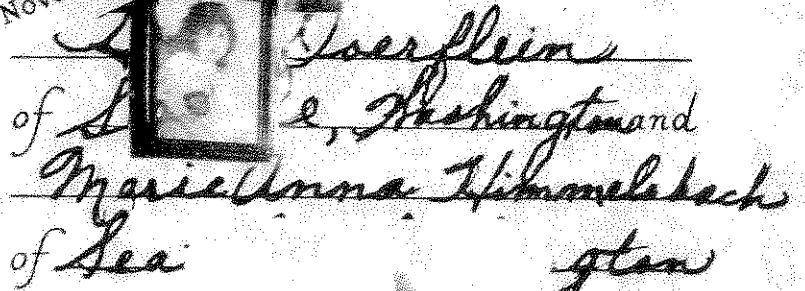 Nov
Doerflein
of S e, Washington and
Marie Anna Himmelsbach
of Sea gton